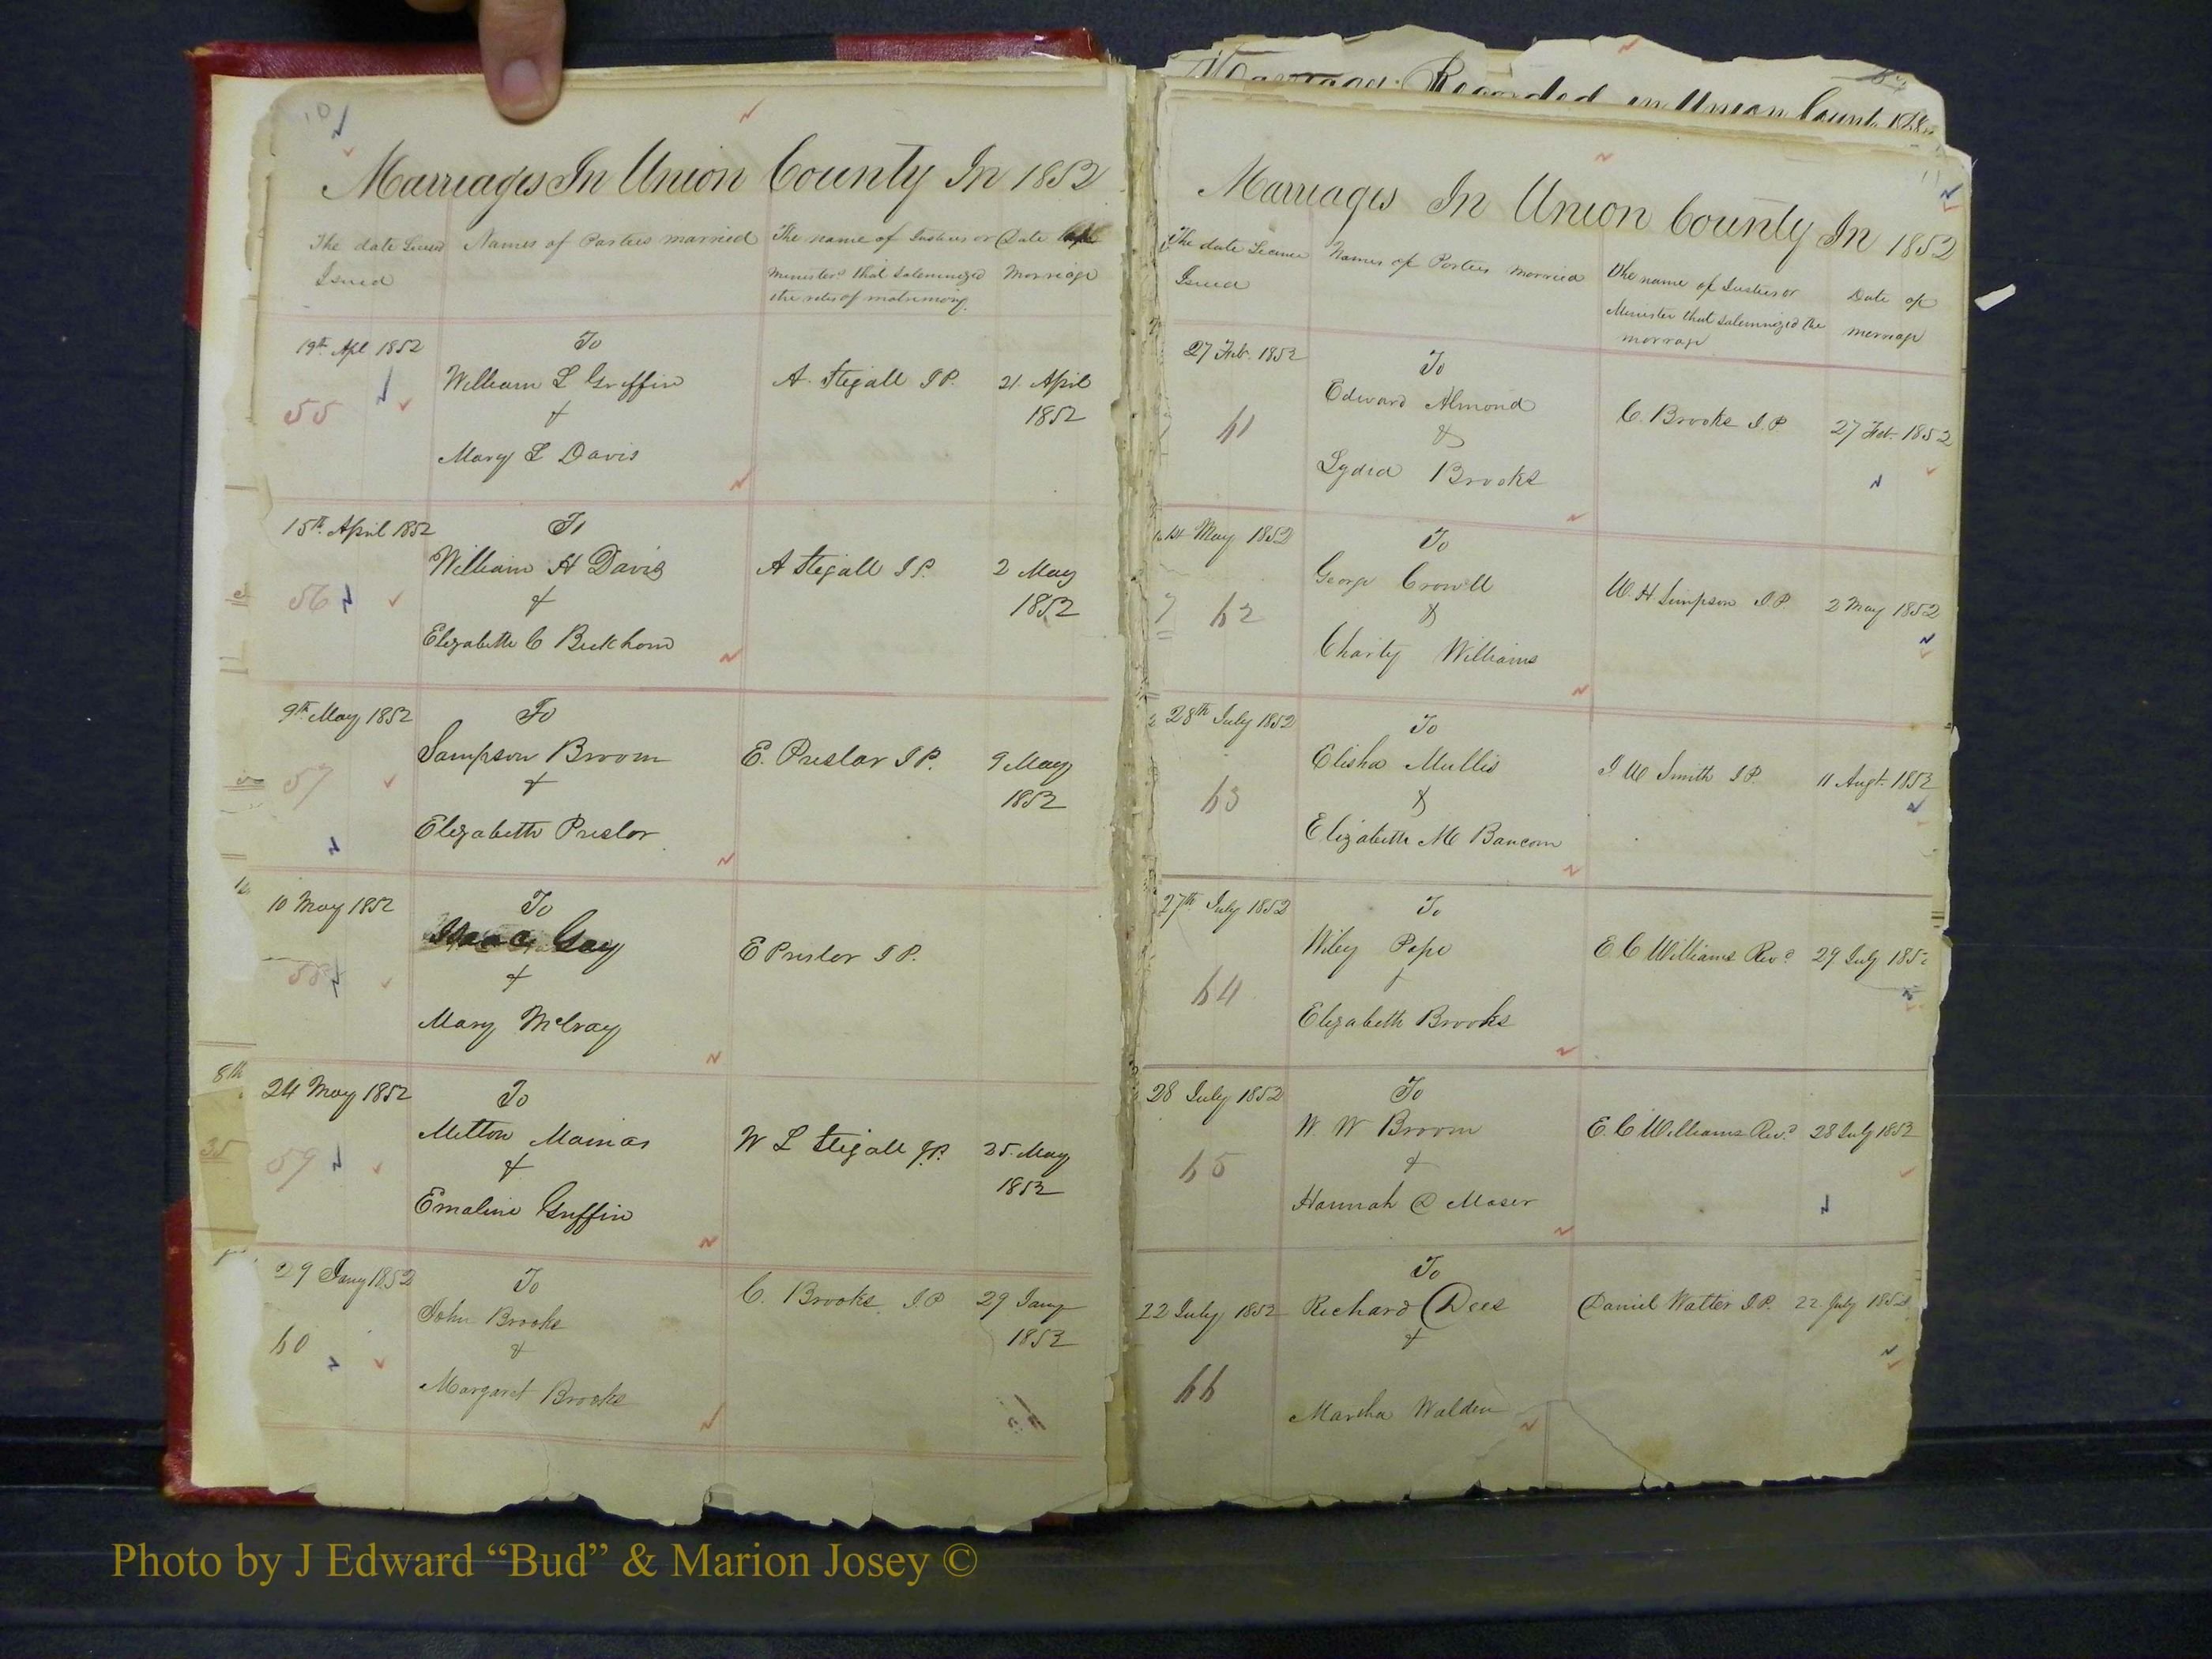 10
Marriages In Union County In 1852
The date Licens Issued
Names of Parties married
The name of Justices or Ministers that solemnized the rites of matrimony
Date marriage
19th Apl 1852
55
To
William L Griffin
&
Mary L Davis
A. Stegall J.P.
21 April
1852
15th April 1852
56
To
William H Davis
&
Elizabeth C Beckhom
A Stegall J.P.
2 May
1852
9th May 1852
57
To
Sampson Broom
&
Elizabeth Preslor
E. Preslar J.P.
9 May
1852
10 May 1852
58
To
Isaac Gay
&
Mary McCray
E Preslor J.P.
24 May 1852
59
To
Milton Mainas
&
Emaline Griffin
W L Stegall J.P.
25 May
1852
29 Jany 1852
60
To
John Brooks
&
Margaret Brooks
C. Brooks J.P
29 Jany
1852
8th
35
Marriages Recorded in Union Count
11
Marriages In Union County In 1852
The date Licence
Issued
Names of Parties married
The name of Justices or
Minister that solemnized the
marrage
Date of
marriage
27 Feb. 1852
61
To
Edward Almond
&
Lydia Brooks
C. Brooks J.P
27 Feb. 1852
1st May 1852
62
To
George Crowell
&
Charity Williams
W. H Simpson J.P.
2 May 1852
28th July 1852
63
To
Elisha Mullis
&
Elizabeth M Baucom
J W Smith J.P.
11 Augt. 1852
27th July 1852
64
To
Wiley Pope
&
Elizabeth Brooks
E C Williams Revd
29 July 185
28 July 1852
65
To
W. W Broom
&
Hannah C Moser
E. C Williams Revd
28 July 1852
22 July 1852
66
To
Richard Dees
&
Martha Walden
Daniel Walter J.P.
22 July 1852
Photo by J Edward “Bud” & Marion Josey ©